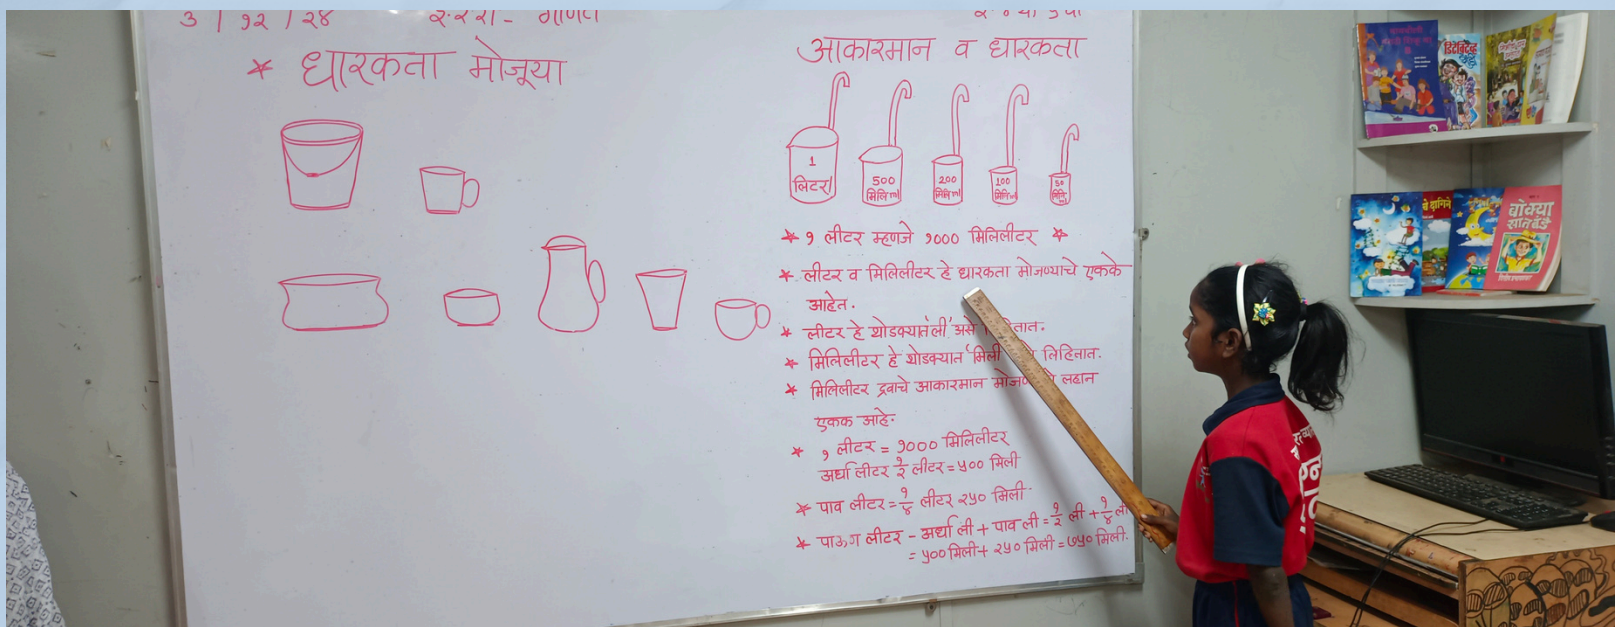 ३ / १२ / २४
गणित
* धारकता मोजूया
आकारमान व धारकता
1 लिटर
500 मिलि ml
200 मिलि ml
100 मिलि ml
50 मिलि ml
* १ लीटर म्हणजे १००० मिलिलीटर *
* लीटर व मिलिलीटर हे धारकता मोजण्याचे एकके
आहेत.
* लीटर हे थोडक्यात 'ली' असे
* मिलिलीटर हे थोडक्यात 'मिली लिहितात.
* मिलिलीटर द्रवाचे आकारमान लहान
एकक आहे.
* १ लीटर = १००० मिलिलीटर
अर्धा लीटर १/२ लीटर = ५०० मिली
* पाव लीटर = १/४ लीटर २५० मिली
* पाऊण लीटर - अर्धा ली + पाव ली = १/२ ली + १/४ ली
= ५०० मिली + २५० मिली = ७५० मिली.
डिटेक्टिव्ह
बोक्या
सातबंडे